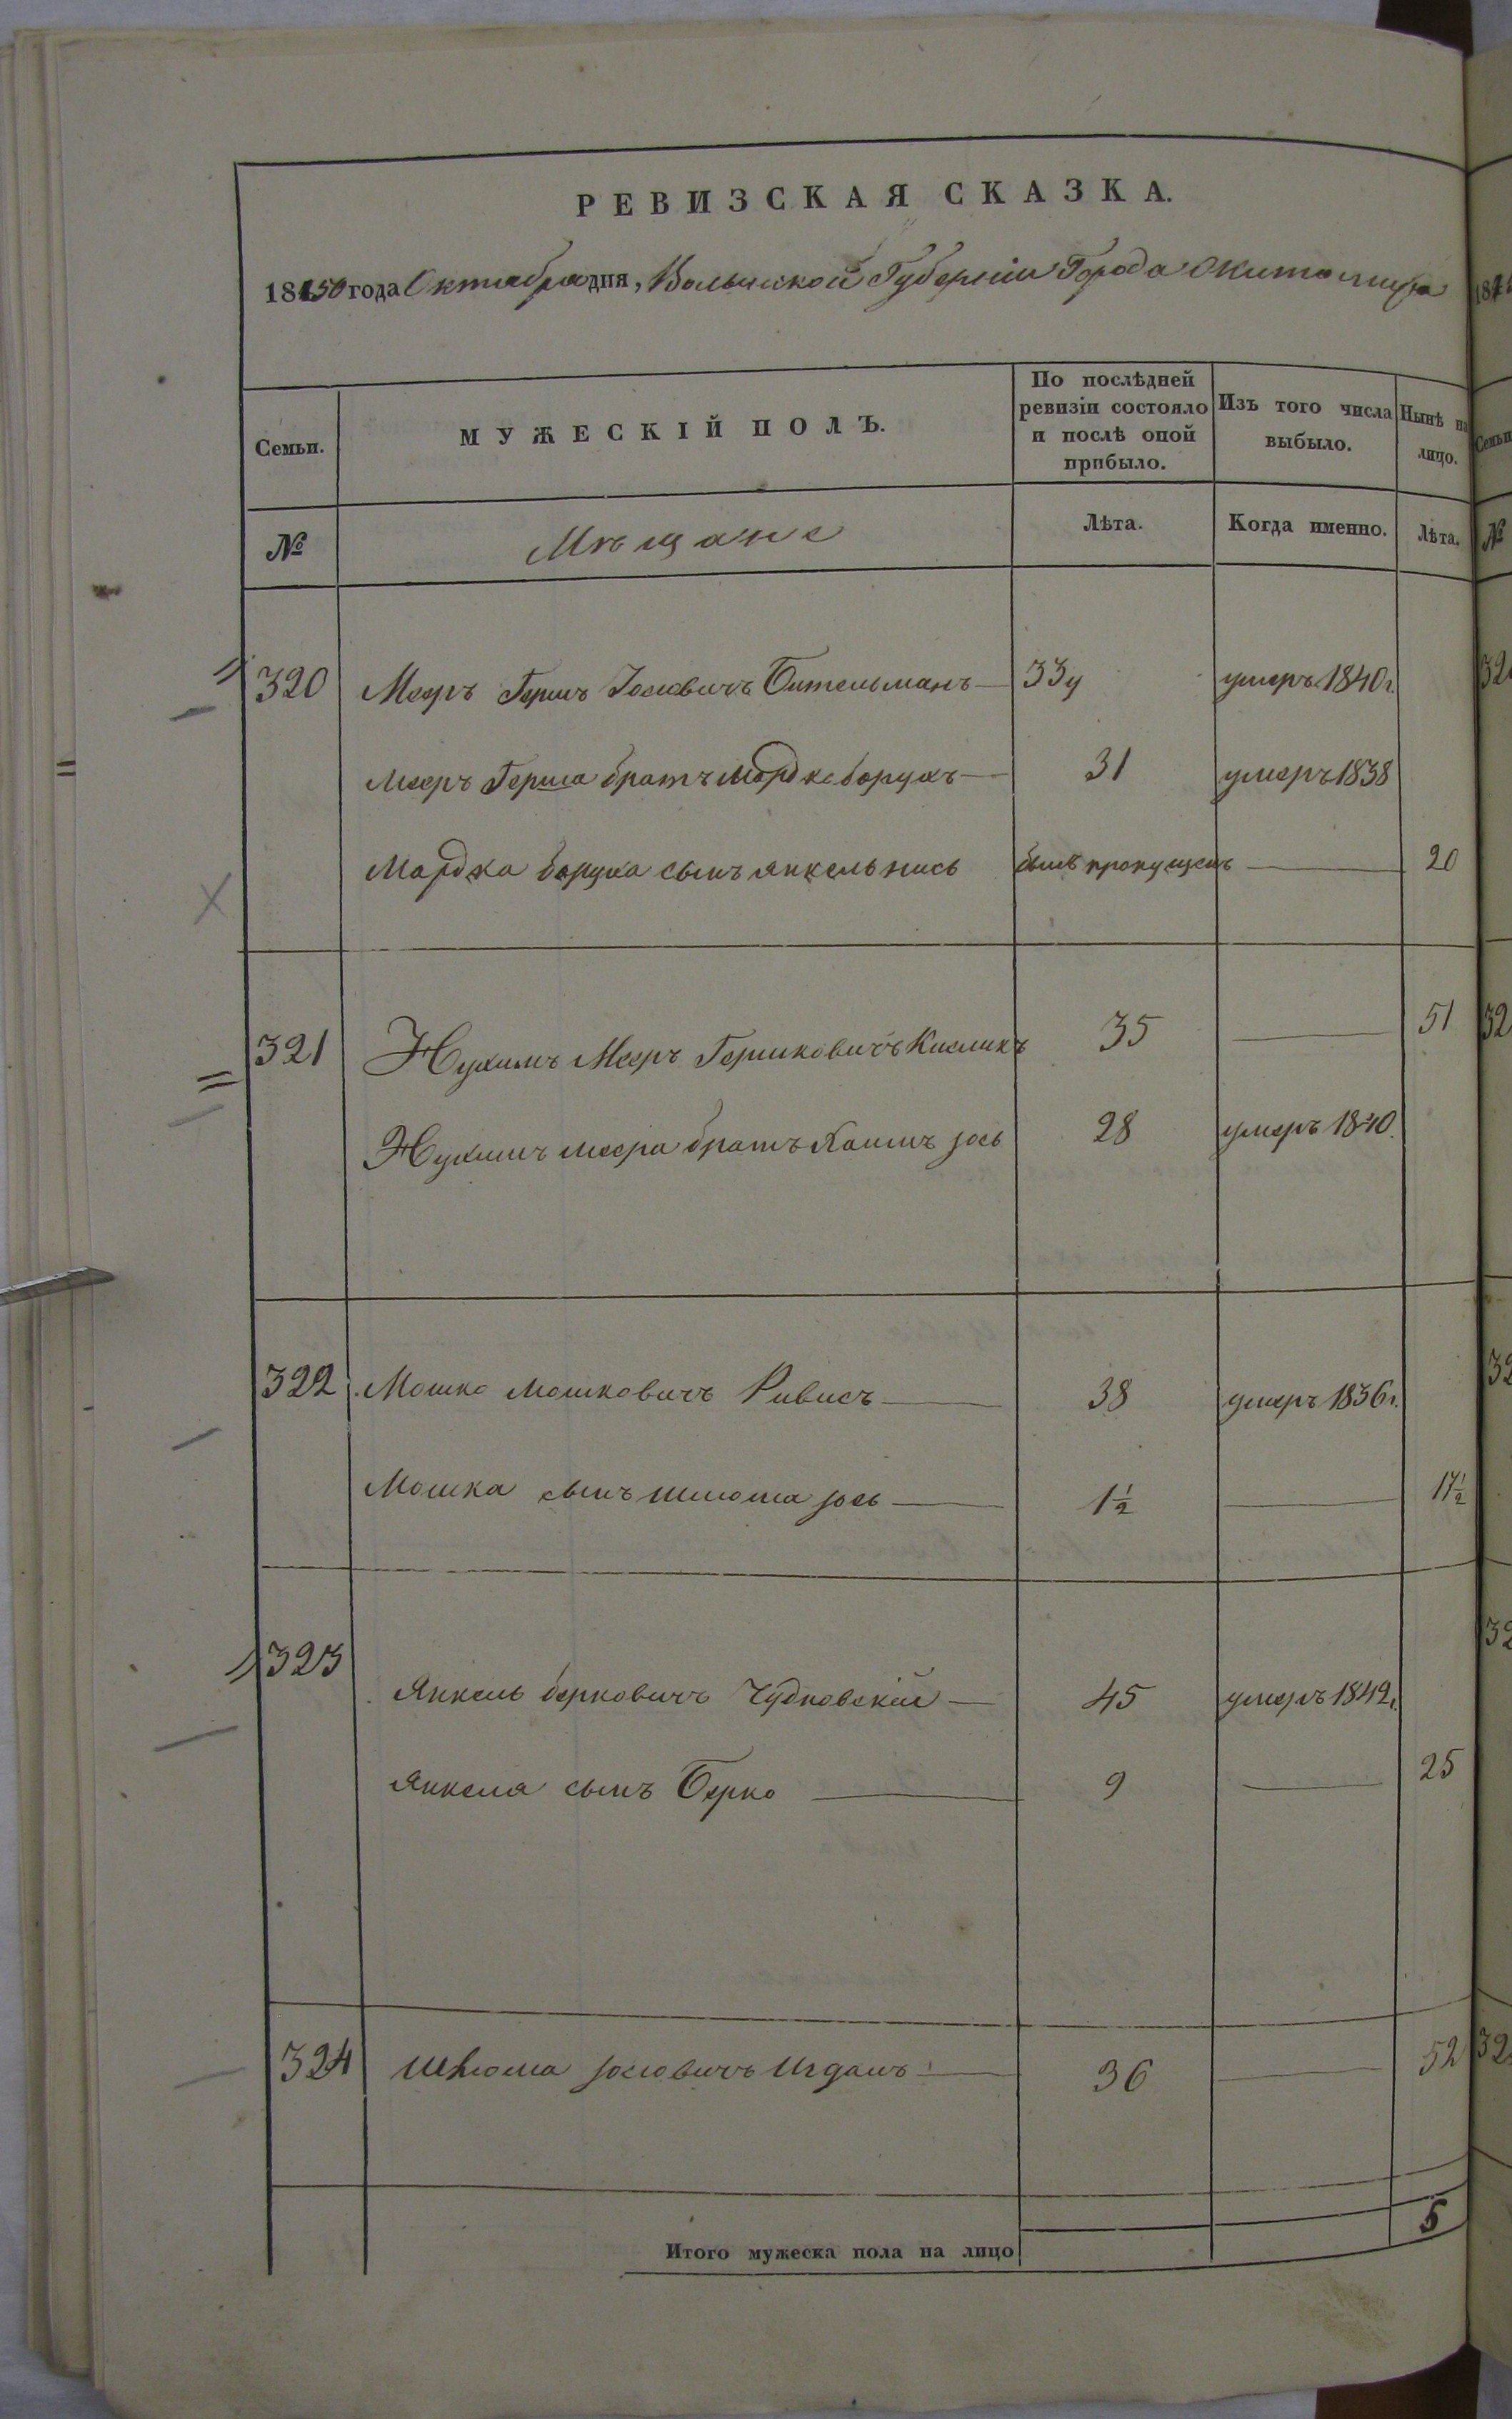 РЕВИЗСКАЯ СКАЗКА.
1850 года Октября дня, Волынской Губерніи Города Житомира
Семьи.
МУЖЕСКІЙ ПОЛЪ.
По послѣдней ревизіи состояло и послѣ оной прибыло.
Изъ того числа выбыло.
Нынѣ на лицо.
№ Мѣщане Лѣта. Когда именно. Лѣта.
320 Мееръ Гершъ Іосіовичъ Бительманъ 33 умеръ 1840г.
Мееръ Герша братъ Мордко борухъ 31 умеръ 1838
Мордка боруха сынъ янкель нись былъ пропущенъ 20
321 Нухимъ Мееръ Гершковичъ 35 51
Нухимъ меера братъ Хаимъ іось 28 умеръ 1840.
322 Мошко мошковичъ Ривисъ 38 умеръ 1836г.
Мошка сынъ шлиома іось 1½ 17½
323 Янкель берковичъ Чудновскій 45 умеръ 1842г.
Янкеля сынъ Берко 9 25
324 Шлиома іосіовичъ 36 52
Итого мужеска пола на лицо 5